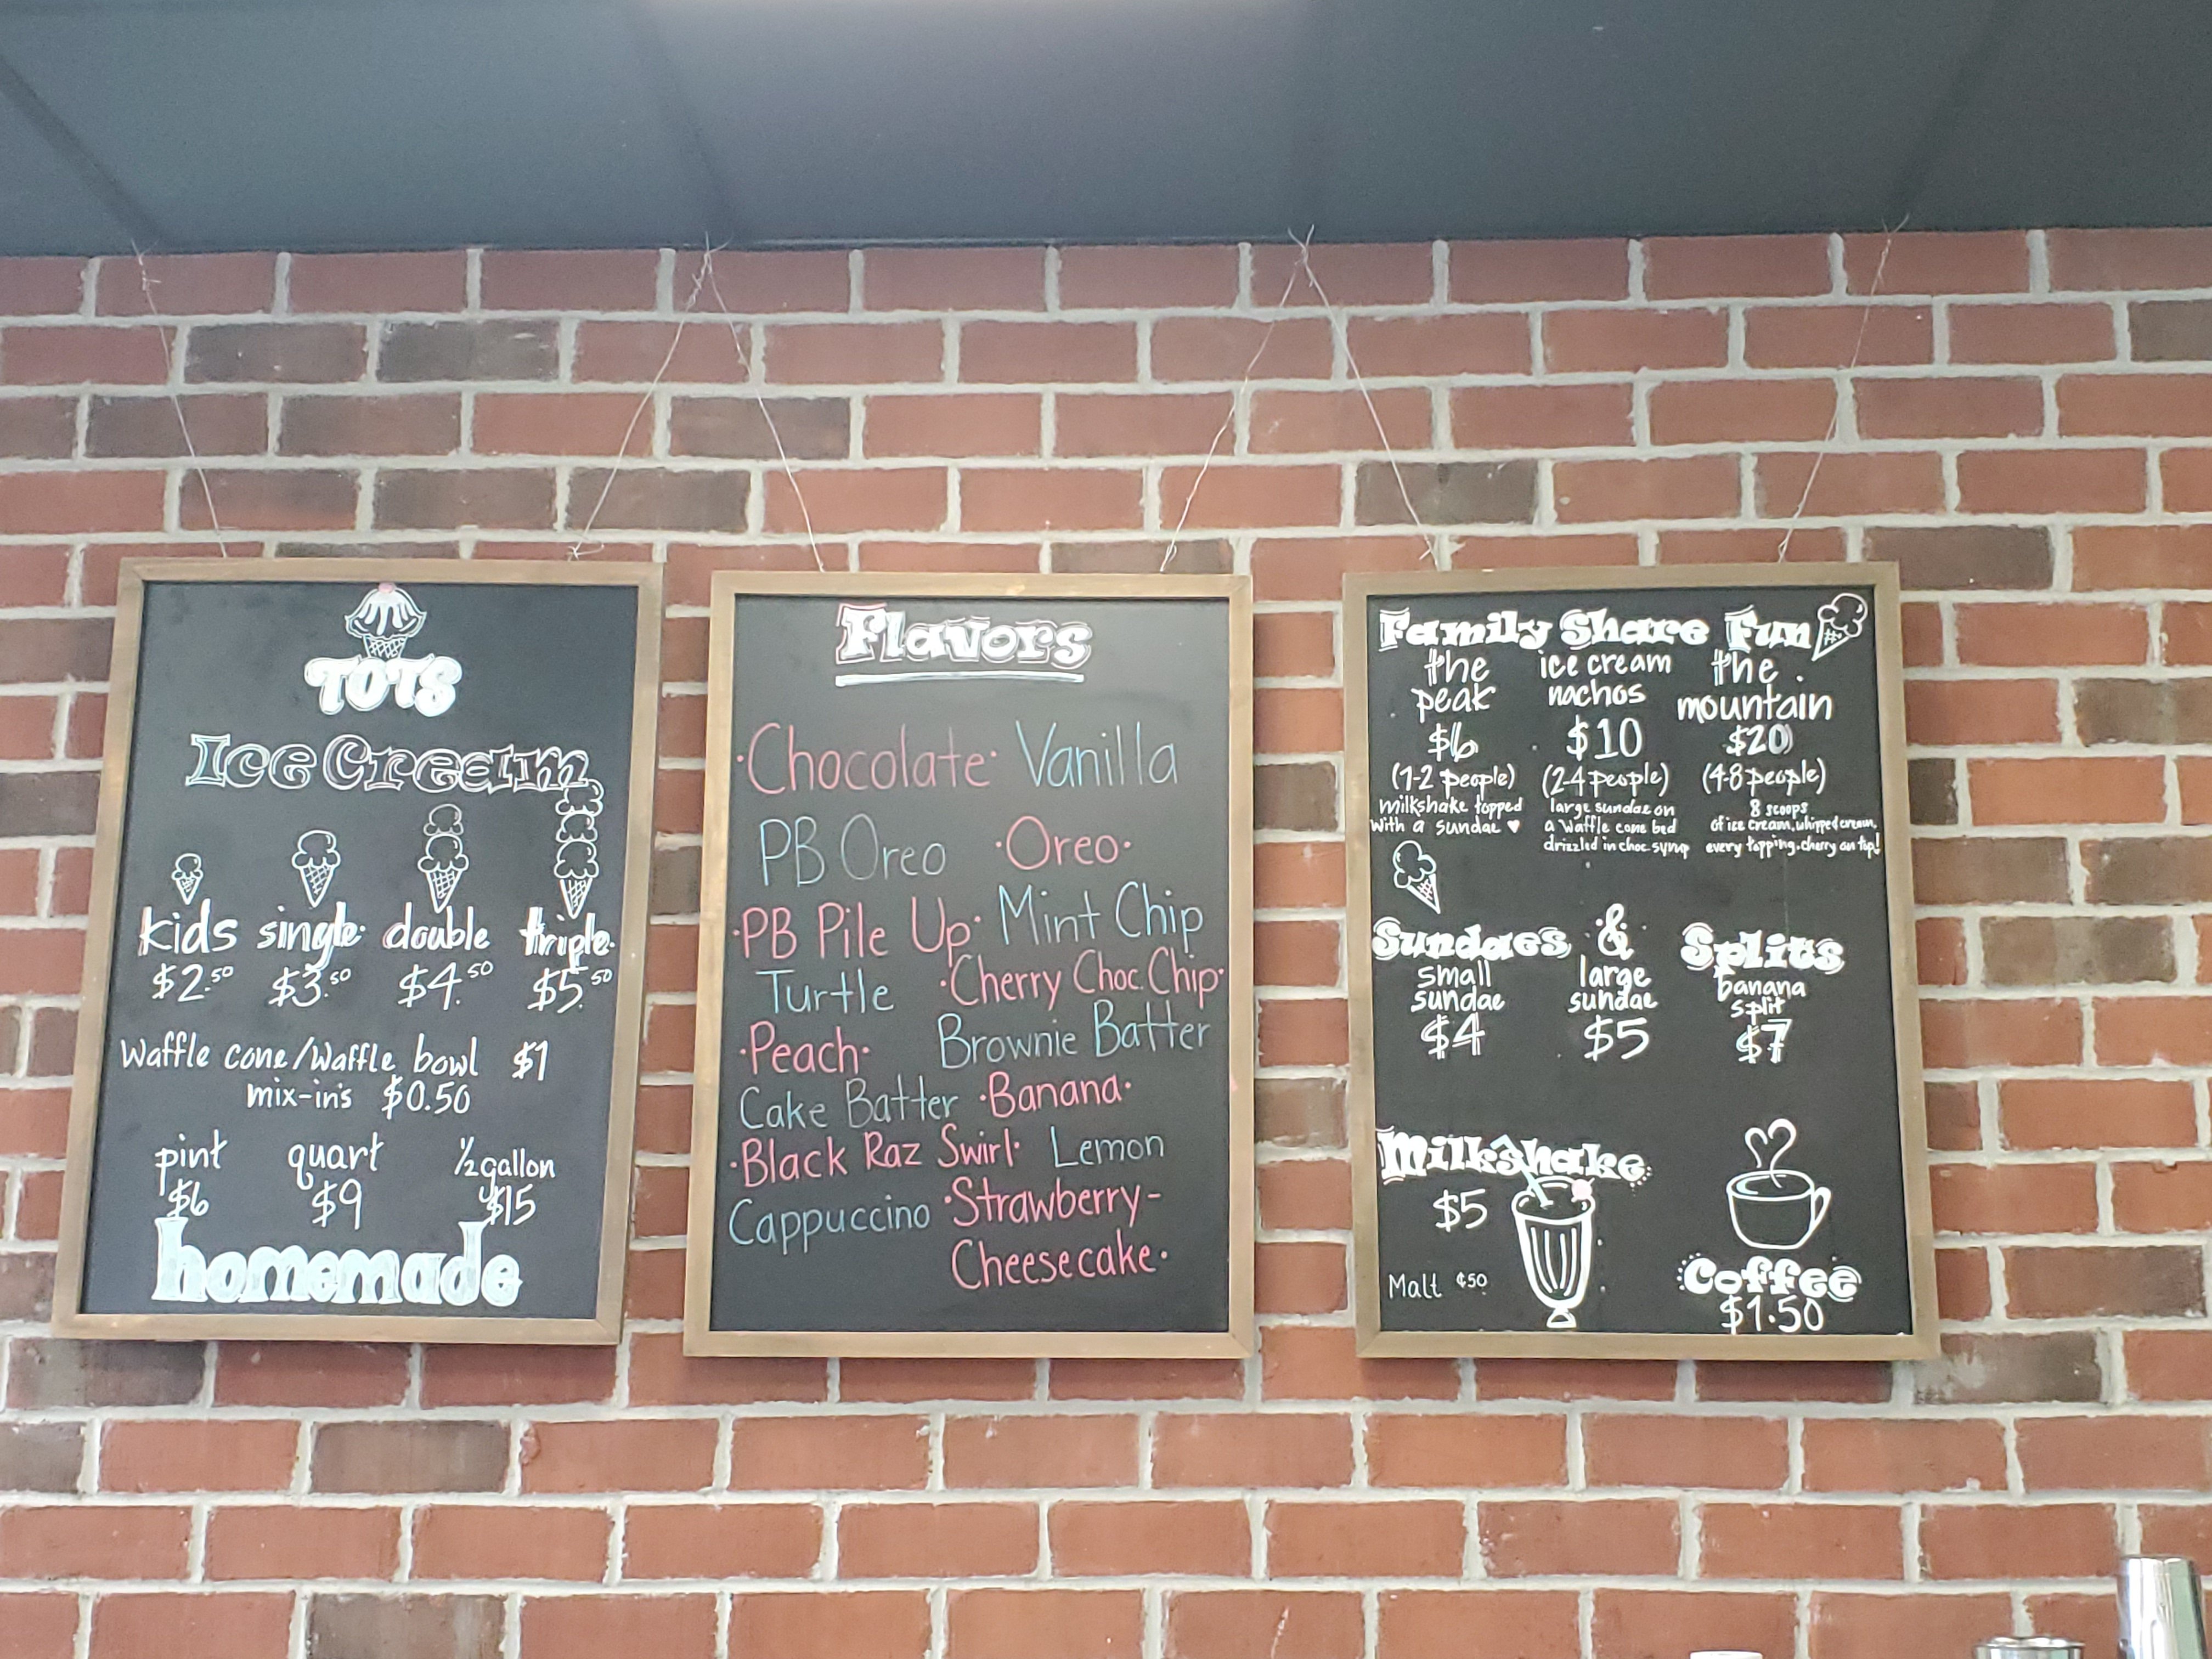 TOTS
Ice Cream
kids single double triple
$2.50 $3.50 $4.50 $5.50
Waffle cone/Waffle bowl $1
mix-in's $0.50
pint quart 1/2 gallon
$6 $9 $15
homemade
Flavors
·Chocolate· Vanilla
PB Oreo ·Oreo·
·PB Pile Up· Mint Chip
Turtle ·Cherry Choc. Chip·
·Peach· Brownie Batter
Cake Batter ·Banana·
·Black Raz Swirl· Lemon
Cappuccino ·Strawberry-
Cheesecake·
Family Share Fun
the peak
$6
(1-2 people)
milkshake topped
with a sundae ♥
ice cream
nachos
$10
(2-4 people)
large sundae on
a waffle cone bed
drizzled in choc. syrup
the
mountain
$20
(4-8 people)
8 scoops
of ice cream, whipped cream,
every topping, cherry on top!
Sundaes & Splits
small
sundae
$4
large
sundae
$5
banana
split
$7
Milkshake
$5
Malt ¢50
Coffee
$1.50